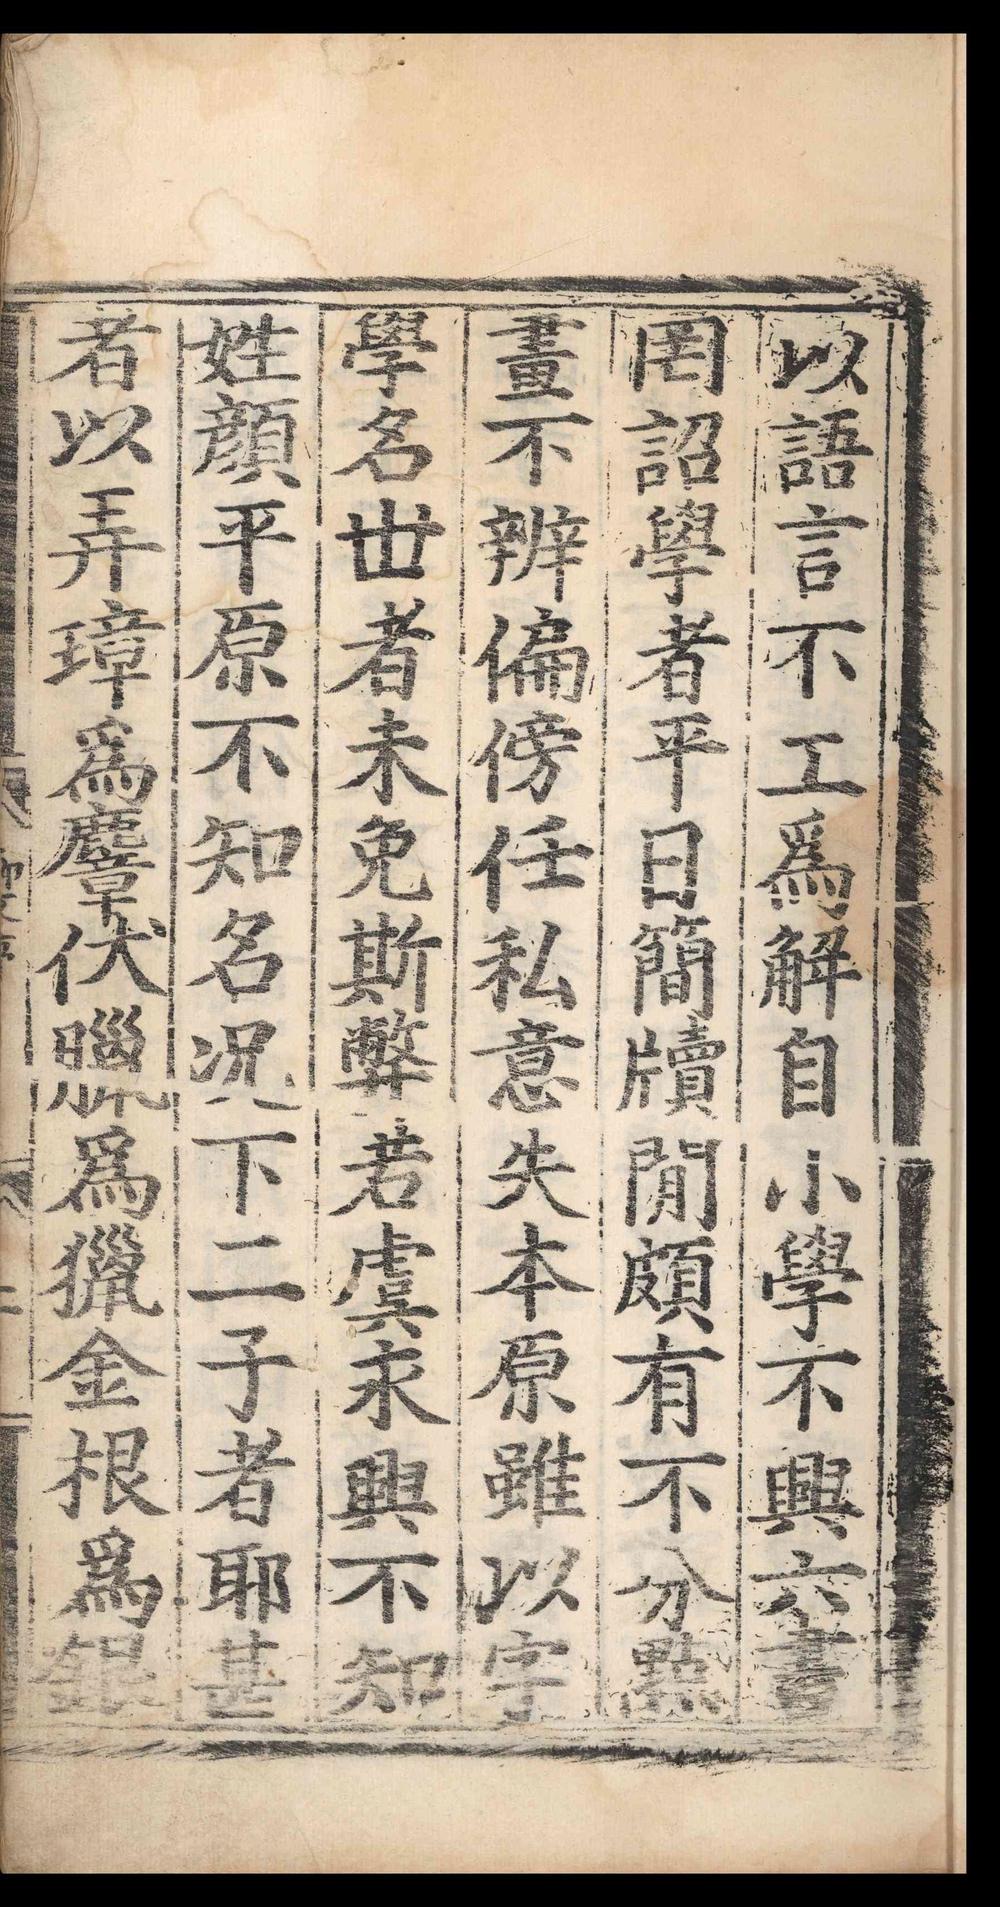 以語言不工爲解自小學不興六書
罔詔學者平日簡牘閒頗有不分點
畫不辨偏傍任私意失本原雖以字
學名丗者未免斯弊若虞永興不知
姓顔平原不知名况下二子者耶甚
者以弄璋爲麞伏臘爲獵金根爲銀